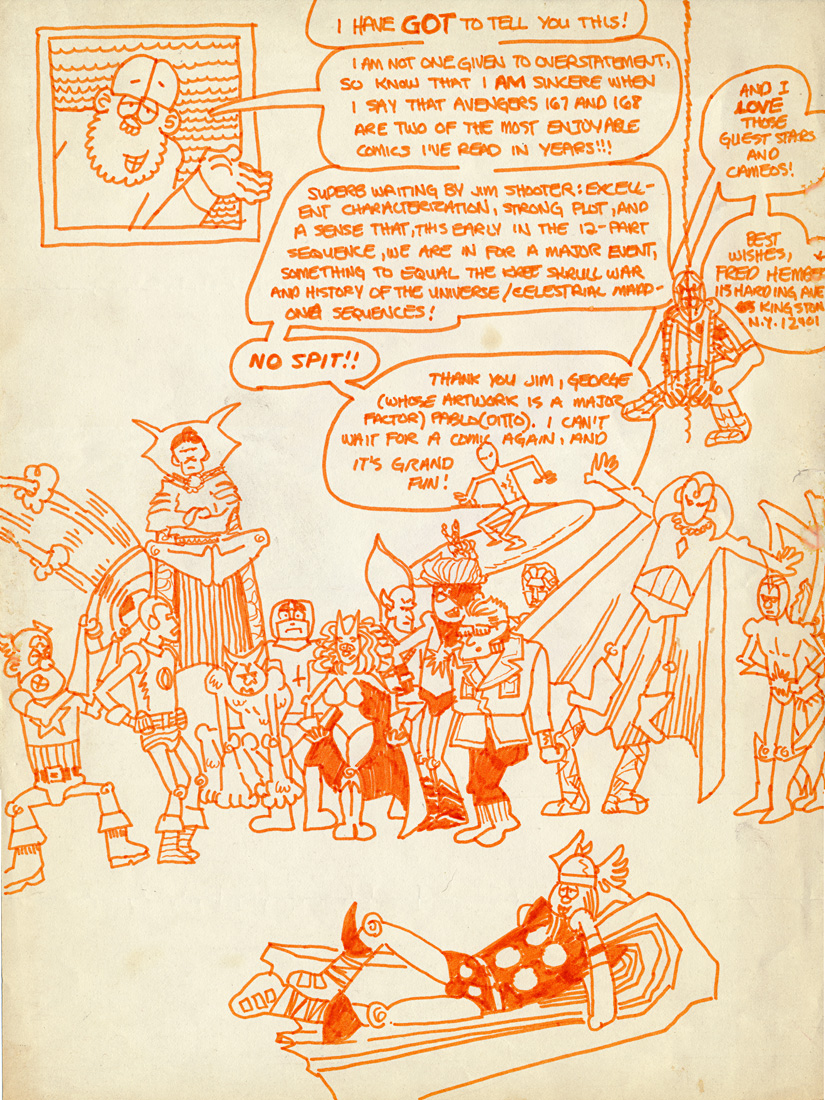 I HAVE GOT TO TELL YOU THIS!
I AM NOT ONE GIVEN TO OVERSTATEMENT,
SO KNOW THAT I AM SINCERE WHEN
I SAY THAT AVENGERS 167 AND 168
ARE TWO OF THE MOST ENJOYABLE
COMICS I'VE READ IN YEARS!!!
SUPERB WRITING BY JIM SHOOTER: EXCELL-
ENT CHARACTERIZATION, STRONG PLOT, AND
A SENSE THAT, THIS EARLY IN THE 12-PART
SEQUENCE, WE ARE IN FOR A MAJOR EVENT,
SOMETHING TO EQUAL THE KREE SKRULL WAR
AND HISTORY OF THE UNIVERSE/CELESTRIAL MADD-
ONA SEQUENCES!
NO SPIT!!
THANK YOU JIM, GEORGE
(WHOSE ARTWORK IS A MAJOR
FACTOR) PABLO (DITTO). I CAN'T
WAIT FOR A COMIC AGAIN, AND
IT'S GRAND
FUN!
AND I
LOVE
THOSE
GUEST STARS
AND
CAMEOS!
BEST
WISHES,
FRED HEMBE
115 HARDING AVE
KINGSTON
N.Y. 12401